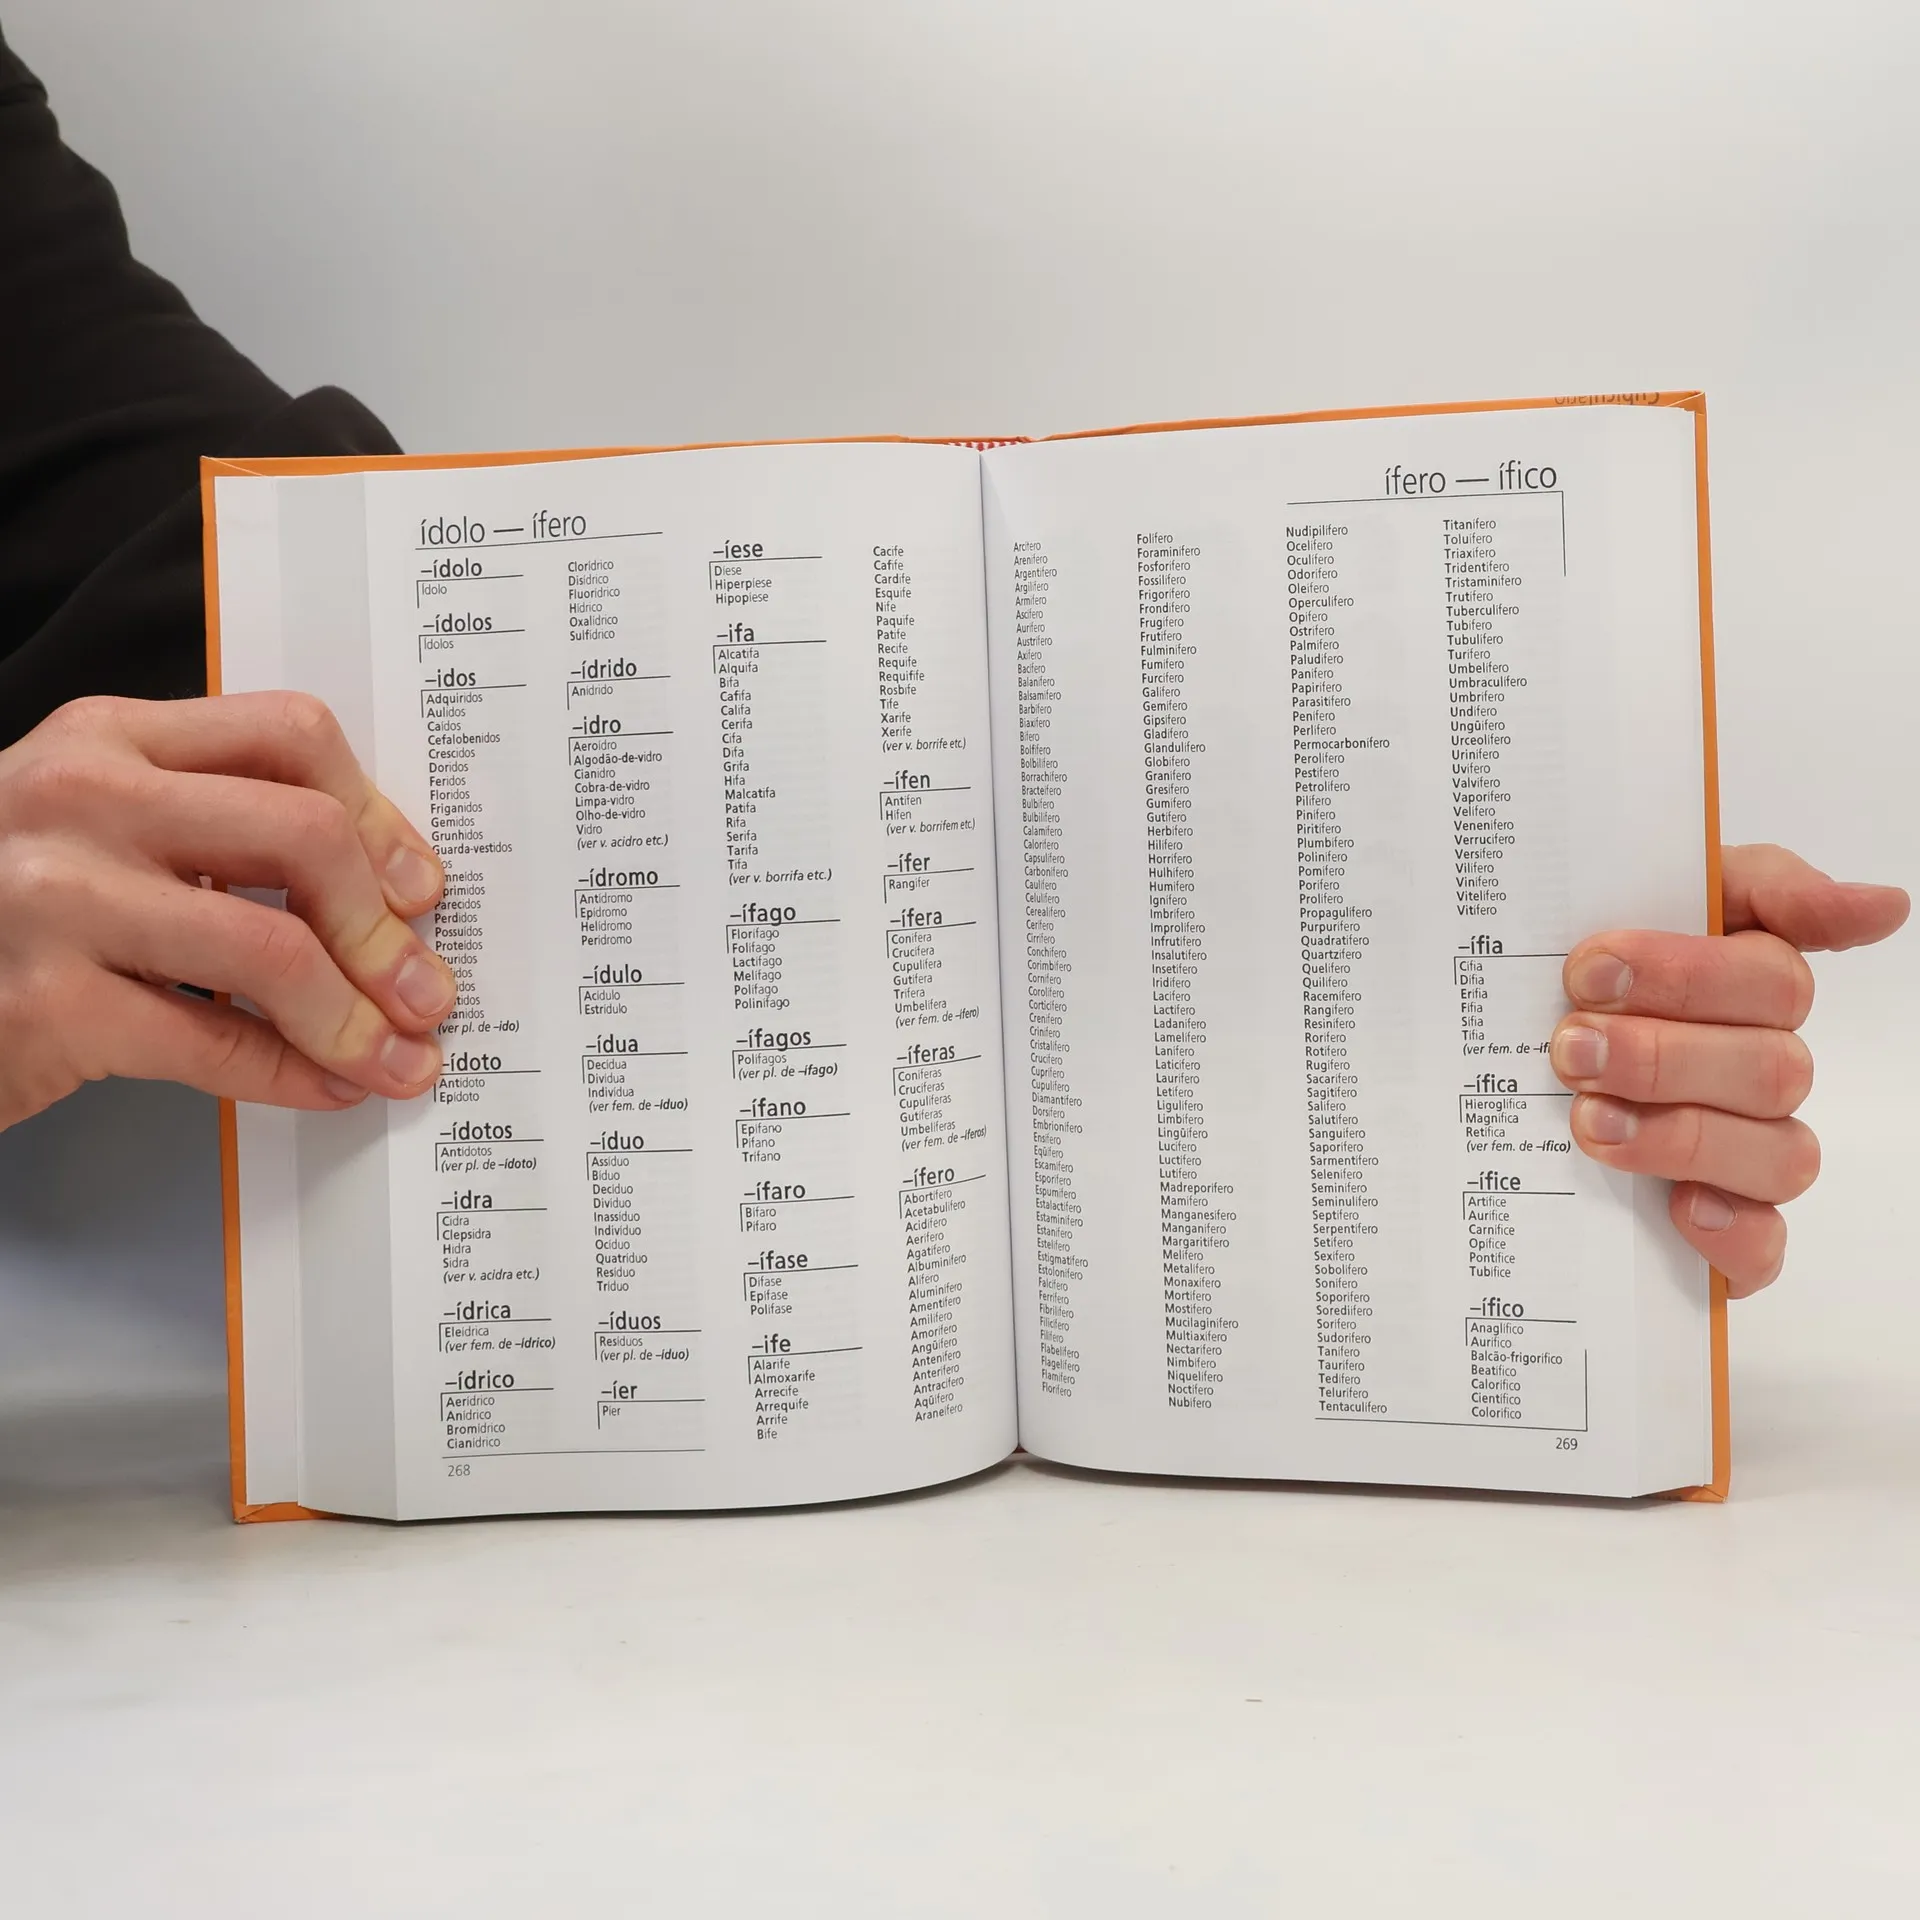 ídolo — ífero
–ídolo
Ídolo
–ídolos
Ídolos
–idos
Adquiridos
Aulidos
Caídos
Cefalobenidos
Crescidos
Doridos
Feridos
Floridos
Friganidos
Gemidos
Grunhidos
Guarda-vestidos
Parecidos
Perdidos
Possuídos
Proteidos
(ver pl. de –ido)
–ídoto
Antídoto
Epídoto
–ídotos
Antídotos
(ver pl. de –ídoto)
–idra
Cidra
Clepsidra
Hidra
Sidra
(ver v. acidra etc.)
–ídrica
Eleídrica
(ver fem. de –ídrico)
–ídrico
Aerídrico
Anídrico
Bromídrico
Cianídrico
268
Clorídrico
Disídrico
Fluorídrico
Hídrico
Oxalídrico
Sulfídrico
–ídrido
Anídrido
–idro
Aeroidro
Algodão-de-vidro
Cianidro
Cobra-de-vidro
Limpa-vidro
Olho-de-vidro
Vidro
(ver v. acidro etc.)
–ídromo
Antídromo
Epídromo
Helídromo
Perídromo
–ídulo
Acídulo
Estrídulo
–ídua
Decídua
Divídua
Indivídua
(ver fem. de –íduo)
–íduo
Assíduo
Bíduo
Decíduo
Divíduo
Inassíduo
Indivíduo
Ocíduo
Quatríduo
Resíduo
Tríduo
–íduos
Resíduos
(ver pl. de –íduo)
–íer
Píer
–íese
Díese
Hiperpíese
Hipopíese
–ifa
Alcatifa
Alquifa
Bifa
Cafifa
Califa
Cerifa
Cifa
Difa
Grifa
Hifa
Malcatifa
Patifa
Rifa
Serifa
Tarifa
Tifa
(ver v. borrifa etc.)
–ífago
Florífago
Folífago
Lactífago
Melífago
Polífago
Polinífago
–ífagos
Polífagos
(ver pl. de –ífago)
–ífano
Epífano
Pífano
Trífano
–ífaro
Bífaro
Pífaro
–ífase
Dífase
Epífase
Polífase
–ife
Alarife
Almoxarife
Arrecife
Arrequife
Arrife
Bife
Cacife
Cafife
Cardife
Esquife
Nife
Paquife
Patife
Recife
Requife
Requifife
Rosbife
Tife
Xarife
Xerife
(ver v. borrife etc.)
–ífen
Antífen
Hífen
(ver v. borrifem etc.)
–ífer
Rangífer
–ífera
Conífera
Crucífera
Cupulífera
Gutífera
Trífera
Umbelífera
(ver fem. de –ífero)
–íferas
Coníferas
Crucíferas
Cupulíferas
Gutíferas
Umbelíferas
(ver fem. de –íferos)
–ífero
Abortífero
Acetabulífero
Acidífero
Aerífero
Agatífero
Albuminífero
Alífero
Aluminífero
Amentífero
Amilífero
Amorífero
Angüífero
Antenífero
Anterífero
Antracífero
Aqüífero
Araneífero
ífero — ífico
Arcífero
Arenífero
Argentífero
Argilífero
Armífero
Ascífero
Aurífero
Austrífero
Axífero
Bacífero
Balanífero
Balsamífero
Barbífero
Biaxífero
Bífero
Bolífero
Bolbilífero
Borrachífero
Bracteífero
Bulbífero
Bulbilífero
Calamífero
Calorífero
Capsulífero
Carbonífero
Caulífero
Celulífero
Cerealífero
Cerífero
Cirrífero
Conchífero
Corimbífero
Cornífero
Corolífero
Corticífero
Crenífero
Crinífero
Cristalífero
Crucífero
Cuprífero
Cupulífero
Diamantífero
Dorsífero
Embrionífero
Ensífero
Eqüífero
Escamífero
Esporífero
Espumífero
Estalactífero
Estaminífero
Estanífero
Estelífero
Estigmatífero
Estolonífero
Falcífero
Ferrífero
Fibrilífero
Filicífero
Filífero
Flabelífero
Flagelífero
Flamífero
Florífero
Folífero
Foraminífero
Fosforífero
Fossilífero
Frigorífero
Frondífero
Frugífero
Frutífero
Fulminífero
Fumífero
Furcífero
Galífero
Gemífero
Gipsífero
Gladífero
Glandulífero
Globífero
Granífero
Gresífero
Gumífero
Gutífero
Herbífero
Hilífero
Horrífero
Hulhífero
Humífero
Ignífero
Imbrífero
Improlífero
Infrutífero
Insalutífero
Insetífero
Iridífero
Lacífero
Lactífero
Ladanífero
Lamelífero
Lanífero
Laticífero
Laurífero
Letífero
Ligulífero
Limbífero
Lingüífero
Lucífero
Luctífero
Lutífero
Madreporífero
Mamífero
Manganesífero
Manganífero
Margaritífero
Melífero
Metalífero
Monaxífero
Mortífero
Mostífero
Mucilaginífero
Multiaxífero
Nectarífero
Nimbífero
Niquelífero
Noctífero
Nubífero
Nudipilífero
Ocelífero
Oculífero
Odorífero
Oleífero
Operculífero
Opífero
Ostrífero
Palmífero
Paludífero
Panífero
Papirífero
Parasitífero
Penífero
Perlífero
Permocarbonífero
Perolífero
Pestífero
Petrolífero
Pilífero
Pinífero
Piritífero
Plumbífero
Polinífero
Pomífero
Porífero
Prolífero
Propagulífero
Purpurífero
Quadratífero
Quartzífero
Quelífero
Quilífero
Racemífero
Rangífero
Resinífero
Rorífero
Rotífero
Rugífero
Sacarífero
Sagitífero
Salífero
Salutífero
Sanguífero
Saporífero
Sarmentífero
Selenífero
Seminífero
Seminulífero
Septífero
Serpentífero
Setífero
Sexífero
Sobolífero
Sonífero
Soporífero
Sorediífero
Sorífero
Sudorífero
Tanífero
Taurífero
Tedífero
Telurífero
Tentaculífero
Titanífero
Toluífero
Triaxífero
Tridentífero
Tristaminífero
Trutífero
Tuberculífero
Tubífero
Tubulífero
Turífero
Umbelífero
Umbraculífero
Umbrífero
Undífero
Ungüífero
Urceolífero
Urinífero
Uvífero
Valvífero
Vaporífero
Velífero
Venenífero
Verrucífero
Versífero
Vilífero
Vinífero
Vitelífero
Vitífero
–ífia
Cífia
Dífia
Erífia
Fífia
Sífia
Tífia
(ver fem. de
–ífica
Hieroglífica
Magnífica
Retífica
(ver fem. de –ífico)
–ífice
Artífice
Aurífice
Carnífice
Opífice
Pontífice
Tubífice
–ífico
Anaglífico
Aurífico
Balcão-frigorífico
Beatífico
Calorífico
Científico
Colorífico
269
Cubiculário